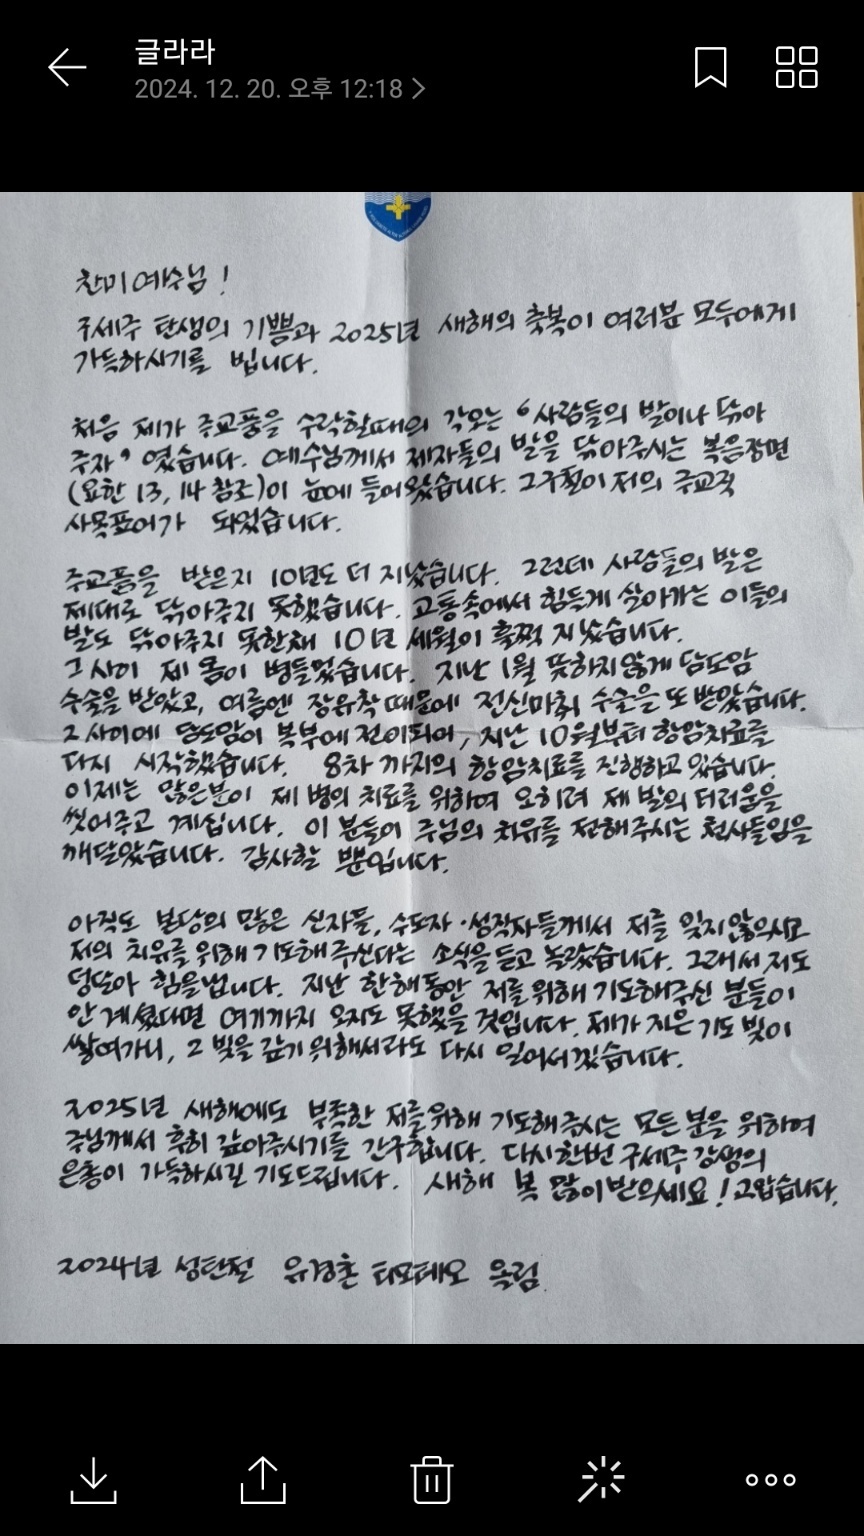 글라라
2024. 12. 20. 오후 12:18 >
찬미예수님!
구세주 탄생의 기쁨과 2025년 새해의 축복이 여러분 모두에게
가득하시기를 빕니다.
처음 제가 주교품을 수락할때의 각오는 "사람들의 발이나 닦아
주자" 였습니다. 예수님께서 제자들의 발을 닦아주시는 복음장면
(요한 13, 14 참조)이 눈에 들어왔습니다. 그구절이 저의 주교직
사목표어가 되었습니다.
주교품을 받은지 10년도 더 지났습니다. 그런데 사람들의 발은
제대로 닦아주지 못했습니다. 고통속에서 힘들게 살아가는 이들의
발도 닦아주지 못한채 10년 세월이 훌쩍 지났습니다.
그 사이 제 몸이 병들었습니다. 지난 1월 뜻하지않게 담도암
수술을 받았고, 여름엔 장유착 때문에 전신마취 수술을 또 받았습니다.
그 사이에 담도암이 복부에 전이되어, 지난 10월부터 항암치료를
다시 시작했습니다. 8차 까지의 항암치료를 진행하고 있습니다.
이제는 많은분이 제 병의 치료를 위하여 오히려 제 발의 더러움을
씻어주고 계십니다. 이 분들이 주님의 치유를 전해주시는 천사들임을
깨달았습니다. 감사할 뿐입니다.
아직도 본당의 많은 신자들, 수도자·성직자들께서 저를 잊지않으시고
저의 치유를 위해 기도해 주신다는 소식을 듣고 놀랐습니다. 그래서 저도
덩달아 힘을냅니다. 지난 한해동안 저를위해 기도해주신 분들이
안 계셨다면 여기까지 오지도 못했을 것입니다. 제가 지은 기도 빚이
쌓여가니, 그 빚을 갚기 위해서라도 다시 일어서겠습니다.
2025년 새해에도 부족한 저를위해 기도해주시는 모든 분을 위하여
주님께서 후히 갚아주시기를 간구합니다. 다시한번 구세주 강생의
은총이 가득하시길 기도드립니다. 새해 복 많이받으세요! 고맙습니다.
2024년 성탄절 유경촌 티모테오 올림.